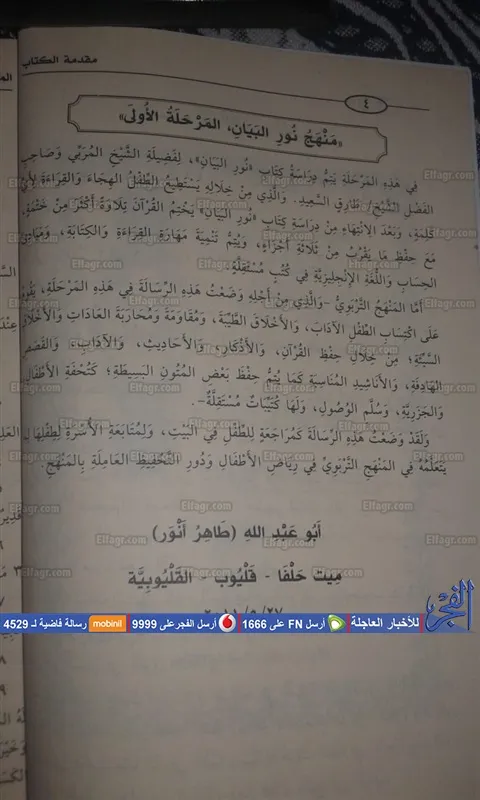 مقدمة الكتاب
٤
«مَنْهَجُ نُورِ البَيَانِ، المَرْحَلَةُ الأُولَى»
فِي هَذِهِ المَرْحَلَةِ يَتِمُّ دِرَاسَةُ كِتَابِ «نُورِ البَيَانِ»، لِفَضِيلَةِ الشَّيْخِ المُرَبِّي وَصَاحِبِ
الفَضْلِ الشَّيْخِ/ طَارِقِ السَّعِيد. وَالَّذِي مِنْ خِلَالِهِ يَسْتَطِيعُ الطِّفْلُ الهِجَاءَ وَالقِرَاءَةَ لِأَيِّ
كَلِمَةٍ، وَبَعْدَ الِانْتِهَاءِ مِنْ دِرَاسَةِ كِتَابِ «نُورِ البَيَانِ» يَخْتِمُ القُرْآنَ تِلَاوَةً أَكْثَرَ مِنْ خَتْمَةٍ،
مَعَ حِفْظِ مَا يَقْرُبُ مِنْ ثَلَاثَةِ أَجْزَاءٍ، وَيَتِمُّ تَنْمِيَةُ مَهَارَةِ القِرَاءَةِ وَالكِتَابَةِ،
الحِسَابِ وَاللُّغَةِ الإِنْجِلِيزِيَّةِ فِي كُتُبٍ مُسْتَقِلَّةٍ.
أَمَّا المَنْهَجُ التَّرْبَوِيُّ -وَالَّذِي مِنْ أَجْلِهِ وَضَعْتُ هَذِهِ الرِّسَالَةَ فِي هَذِهِ المَرْحَلَةِ،
عَلَى اكْتِسَابِ الطِّفْلِ الآدَابَ، وَالأَخْلَاقَ الطَّيِّبَةَ، وَمُقَاوَمَةَ وَمُحَارَبَةَ العَادَاتِ وَالأَخْلَاقِ
السَّيِّئَةِ؛ مِنْ خِلَالِ حِفْظِ القُرْآنِ، وَالأَذْكَارِ، وَالأَحَادِيثِ، وَالآدَابِ، وَالقَصَصِ
الهَادِفَةِ، وَالأَنَاشِيدِ المُنَاسِبَةِ كَمَا يَتِمُّ حِفْظُ بَعْضِ المُتُونِ البَسِيطَةِ؛ كَتُحْفَةِ الأَطْفَالِ
وَالجَزَرِيَّةِ، وَسُلَّمِ الوُصُولِ، وَلَهَا كُتَيِّبَاتٌ مُسْتَقِلَّةٌ-.
وَلَقَدْ وَضَعْتُ هَذِهِ الرِّسَالَةَ كَمُرَاجَعَةٍ لِلطِّفْلِ فِي البَيْتِ، وَلِمُتَابَعَةِ الأُسْرَةِ لِطِفْلِهَا
يَتَعَلَّمُهُ فِي المَنْهَجِ التَّرْبَوِيِّ فِي رِيَاضِ الأَطْفَالِ وَدُورِ التَّحْفِيظِ العَامِلَةِ بِالمَنْهَجِ.
أَبُو عَبْدِ اللهِ (طَاهِرُ أَنْوَر)
مِيت حَلْفَا - قَلْيُوب - القَلْيُوبِيَّة
الفجر للأخبار العاجلة أرسل FN على 1666 أرسل الفجر على 9999 mobinil رسالة فاضية لـ 4529
Elfagr.com